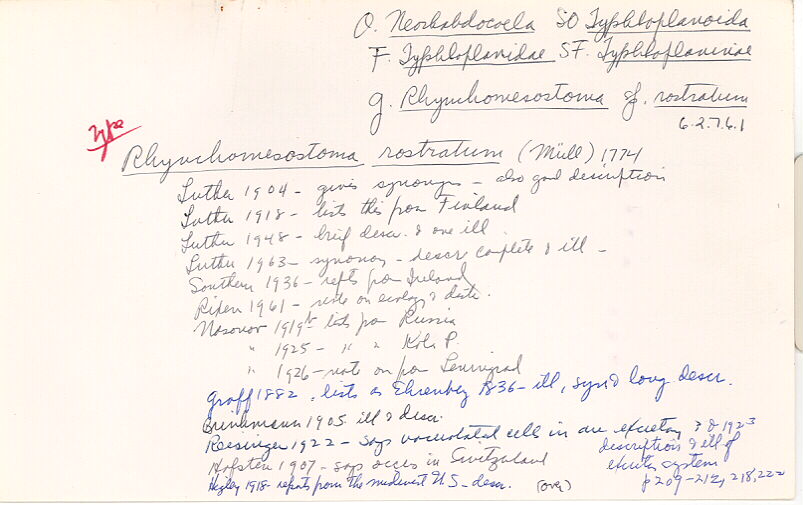 O. Neorhabdocoela SO Typhloplanoida
F. Typhloplanidae SF. Typhloplaninae
g. Rhynchomesostoma sp. rostratum
6.2.7.6.1
Type
Rhynchomesostoma rostratum (Müll) 1774
Luther 1904 - gives synonyms - also good description
Luther 1918 - lists this from Finland
Luther 1948 - brief descr. & one ill.
Luther 1963 - synonomy - descr complete & ill -
Southern 1936 - repts from Ireland
Rixen 1961 - note on ecology & distr.
Nasonov 1919b lists from Russia
" 1925 - " " Kola P.
" 1926 - note on from Leningrad
Graff 1882, lists as Ehrenberg 1836 - ill, syn & long descr.
Brinkmann 1905 ill & descr.
Reisinger 1922 - says vacuolated cells in are excretory & 1923
description & ill of
excretory system
p 209-212, 218, 222
Hofsten 1907 - says occurs in Switzerland
Higley 1918 - reports from the midwest U.S - descr. (over)